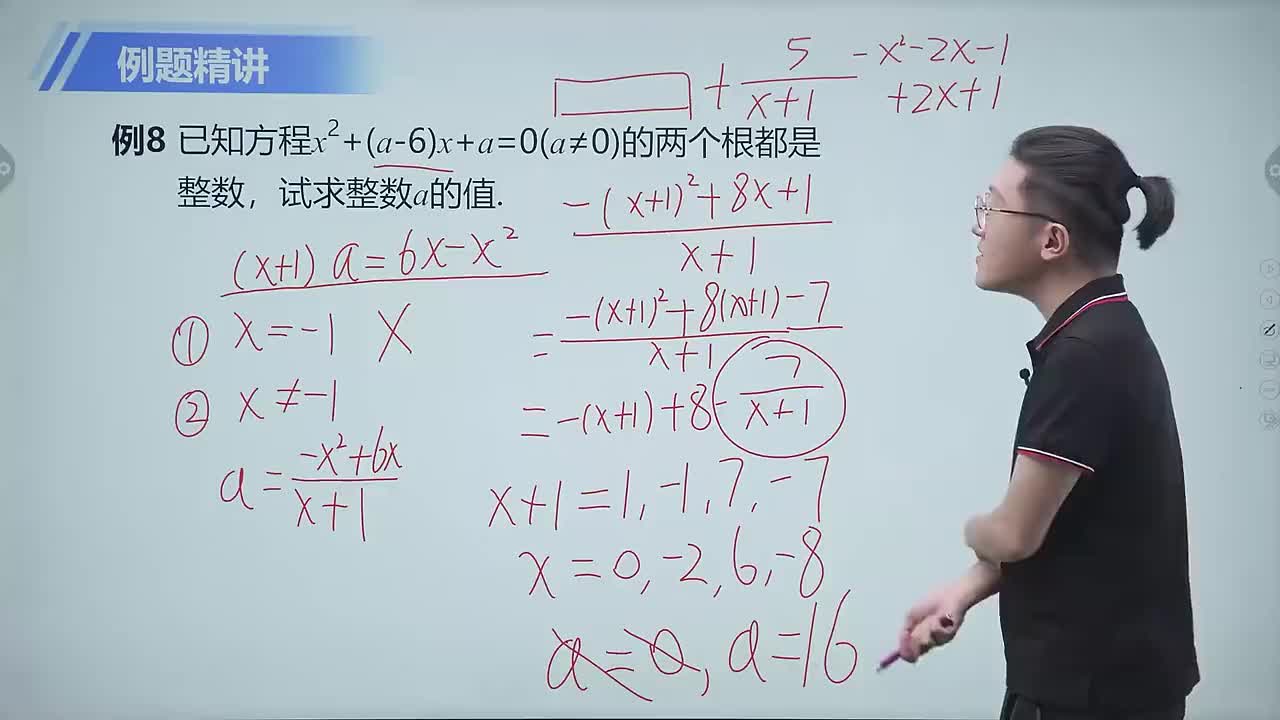 例题精讲
5/(x+1) -x²-2x-1
□ + +2x+1
例8 已知方程x²+(a-6)x+a=0(a≠0)的两个根都是
整数，试求整数a的值.
(x+1)a=6x-x²
① x=-1 X
② x≠-1
a=(-x²+6x)/(x+1)
(-(x+1)²+8x+1)/(x+1)
=(-(x+1)²+8(x+1)-7)/(x+1)
=-(x+1)+8-7/(x+1)
x+1=1,-1,7,-7
x=0,-2,6,-8
a=0,a=16